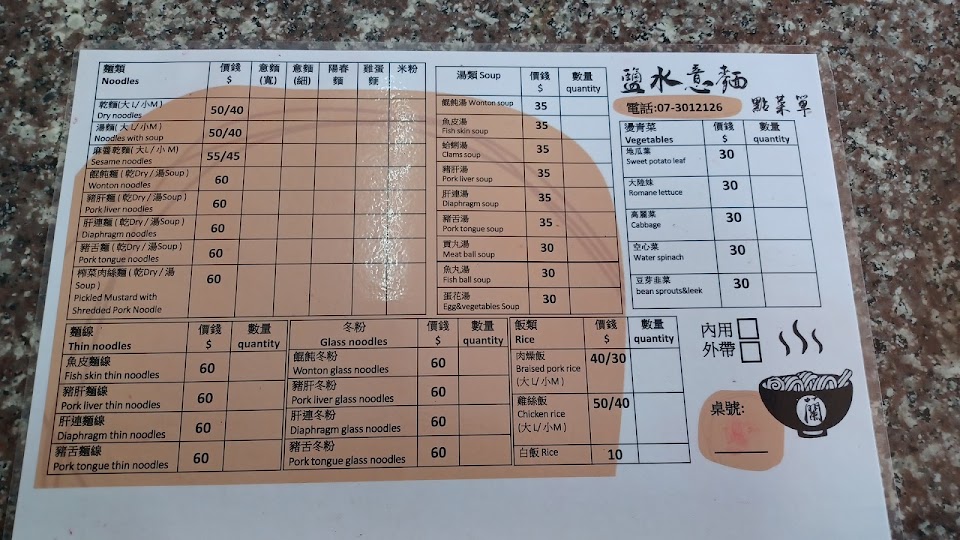 麵類 價錢 意麵 意麵 陽春 雞蛋 米粉
Noodles $ (寬) (細) 麵 麵
乾麵(大L/小M) 50/40
Dry noodles
湯麵(大L/小M) 50/40
Noodles with soup
麻醬乾麵(大L/小M) 55/45
Sesame noodles
餛飩麵(乾Dry/湯Soup) 60
Wonton noodles
豬肝麵(乾Dry/湯Soup) 60
Pork liver noodles
肝連麵(乾Dry/湯Soup) 60
Diaphragm noodles
豬舌麵(乾Dry/湯Soup) 60
Pork tongue noodles
榨菜肉絲麵(乾Dry/湯 60
Soup)
Pickled Mustard with
Shredded Pork Noodle
湯類 Soup 價錢 數量
$ quantity
餛飩湯 Wonton soup 35
魚皮湯 35
Fish skin soup
蛤蜊湯 35
Clams soup
豬肝湯 35
Pork liver soup
肝連湯 35
Diaphragm soup
豬舌湯 35
Pork tongue soup
貢丸湯 30
Meat ball soup
魚丸湯 30
Fish ball soup
蛋花湯 30
Egg&vegetables Soup
鹽水意麵
電話:07-3012126 點菜單
燙青菜 價錢 數量
Vegetables $ quantity
地瓜葉 30
Sweet potato leaf
大陸妹 30
Romane lettuce
高麗菜 30
Cabbage
空心菜 30
Water spinach
豆芽韭菜 30
bean sprouts&leek
麵線 價錢 數量
Thin noodles $ quantity
魚皮麵線 60
Fish skin thin noodles
豬肝麵線 60
Pork liver thin noodles
肝連麵線 60
Diaphragm thin noodles
豬舌麵線 60
Pork tongue thin noodles
冬粉 價錢 數量
Glass noodles $ quantity
餛飩冬粉 60
Wonton glass noodles
豬肝冬粉 60
Pork liver glass noodles
肝連冬粉 60
Diaphragm glass noodles
豬舌冬粉 60
Pork tongue glass noodles
飯類 價錢 數量
Rice $ quantity
肉燥飯 40/30
Braised pork rice
(大L/小M)
雞絲飯 50/40
Chicken rice
(大L/小M)
白飯 Rice 10
內用
外帶
蘭
桌號: